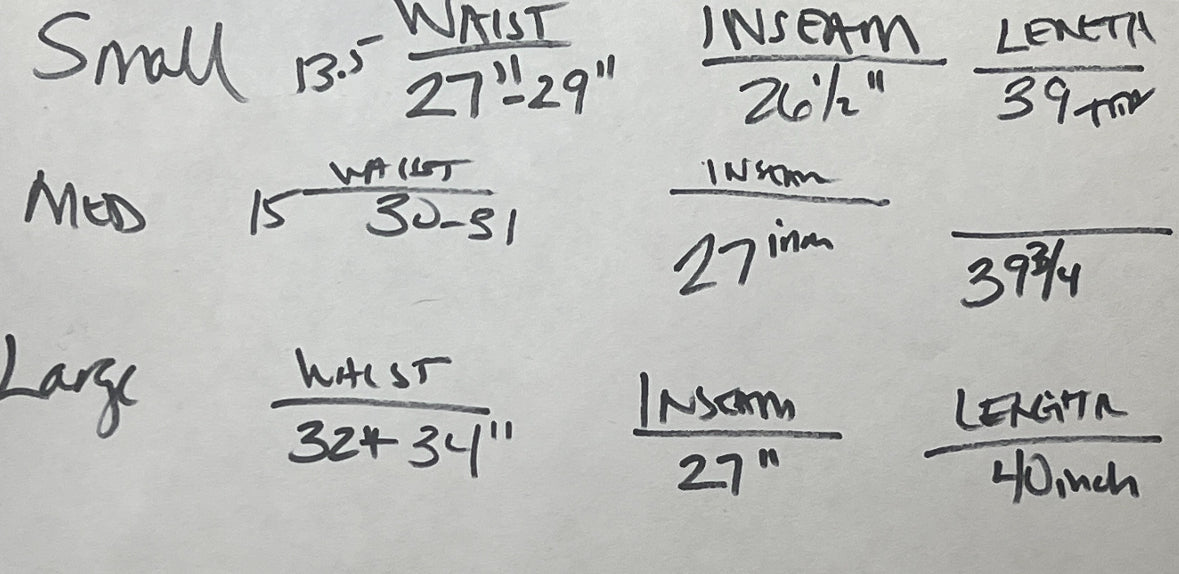 Small 13.5 WAIST INSEAM LENGTH
27"-29" 26 1/2" 39
MED WAIST INSEAM
15 30-31 27 inch 39 3/4
Large WAIST INSEAM LENGTH
32+ 34" 27" 40 inch